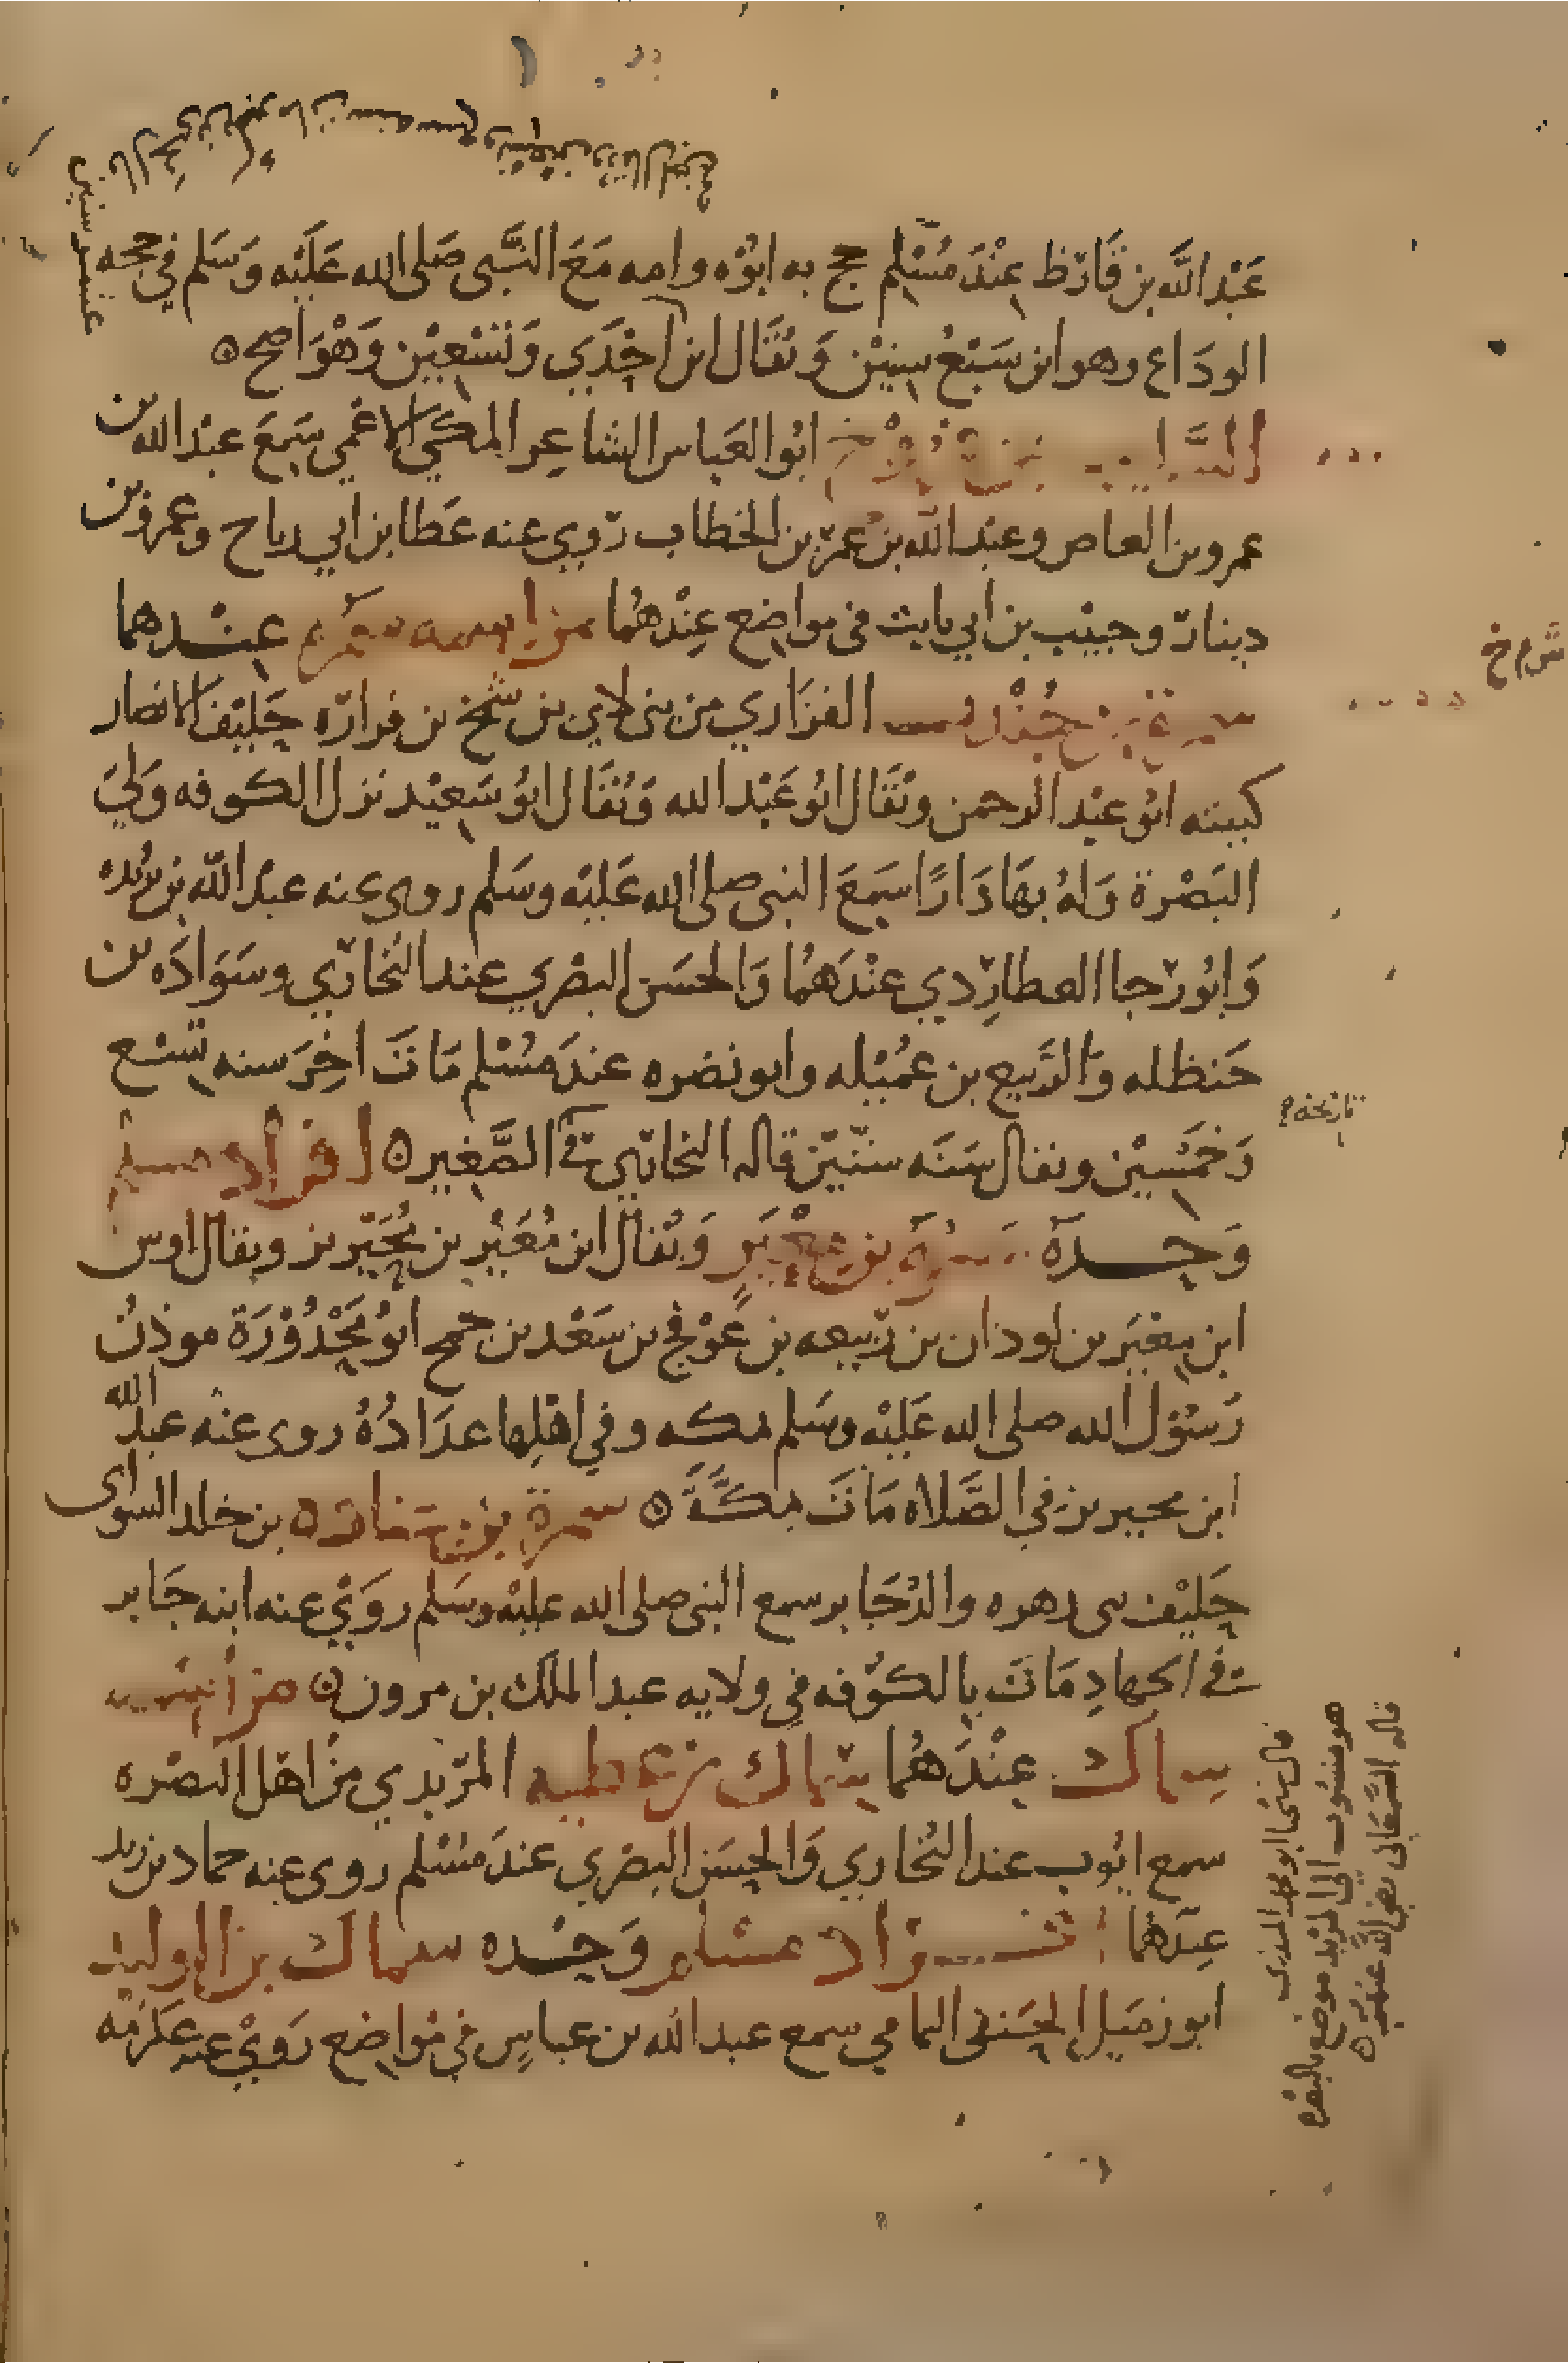 عَبْد اللَّه بن قَارظ عِنْدَ مُسْلِم حج به ابوُه وامه مَعَ النَّبى صَلى الله عَلَيْه وَسَلم في حجه
الودَاع وهو ابن سَبْعُ سِنيْن وَيُقَال ابن احْدَي وَتسْعِيْن وَهْوَ اصح ه
السَّايب بن فروخ ابُو العَباس الشاعِر المكي الاعمي سَمِعَ عبْد الله بن
عمرو بن العاص وعبْد اللَّه بن عمر بن الخطاب رَوِي عنه عَطا بن ابي رباح وعمرو بن
دينار وحبيْب بن ابي ثابت في مواضع عِنْدهُما من اسمه سمرة عِنْدهما
سمرة بن جُنْدب الفزاري من بنى لاي بن شمخ بن فزاره حَليْف الانصار
كنيته ابُو عبْد الرحمن ويُقَال ابُو عَبْد الله وَيُقَال ابُو سَعِيْد نزل الكوفه وَلِيَ
البَصْرة وَلهُ بهَا دَارًا سَمِعَ النبى صلى الله عَليْه وسَلم روى عنه عبْد اللَّه بن بُريْده
وَابُو رَجا العطارِدي عنْدَهمُا وَالحسَن البصْري عند البُخاري وسَوَادَه بن
حَنظله وَالرَّبيع بن عمُيْله وابو نضره عندَ مسُلم مَاتَ اخِرَ سنه تسْع
وَخمَسْيْن ويقال سَنَه ستّيْن قاله البخاري في الصَّغير ه افراد مسلم
وَحْدَهُ سمرَة بن مِعْيَرٍ وَيُقالُ ابن مُعَيْر بن مُحَيْريز ويقال اوس
ابن مِعْيَر بن لوذان بن رَبيعه بن عَوْيج بن سَعْد بن جمح ابُو مَحْذُوْرَة موذِنُ
رَسُوْل الله صلى الله عَليْه وسَلم بمكه وفي اهْلِها عدَادُهُ روى عنْه عبْد الله
ابن محيريز في الصَّلاه مَاتَ بمكَّةَ ه سمرة بن جنادة بن خلد السواى
حَليْف بنى زهره والدُ جَابر سمع النبى صلى الله عليْه وسَلم رَوَيْ عنه ابنه جَابر
في الجهادِ مَاتَ بالكوُفه في ولايه عبد الملك بن مرون ه من اسْمه
سماك عِنْدَهُما سِمَاك بن عطيه المرْبدي منْ اهْل البصْره
سمع ايُوب عند البُخاري وَالحسَن البصْري عندَ مسُلم روى عنه حماد بن زيد
عِنْدَهما افراد مسلم وَحْده سماك بن الوليد
ابو زميل الحَنفى اليمامي سمع عبد الله بن عباسٍ في مْوَاضع رَوَيْ عنه عكرمه
فروخ
تاريخه
قال شيخنا ابو محمد المنذرى
هو منسُوب الي المربد موضع بالبصْره
قاله السَّمعَاني رضي اللَّه عنه ه